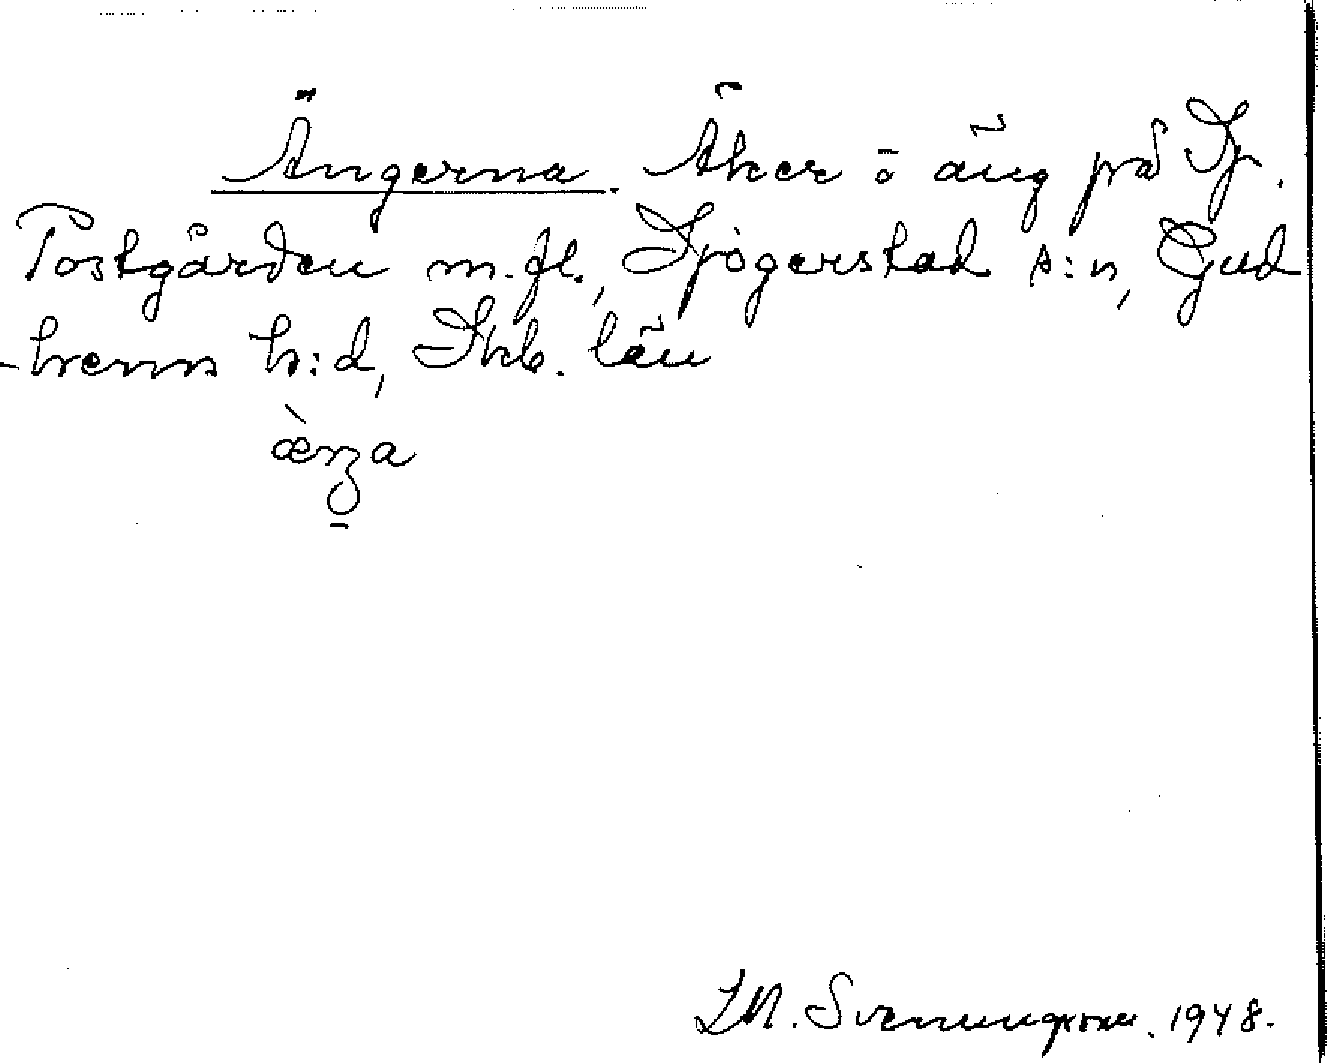 Ängerna. Åker ō äng på Sj.
Postgården m.fl., Sjogerstad s:n, Gud
-hems h:d, Skb. län
Svenungsson. 1948.